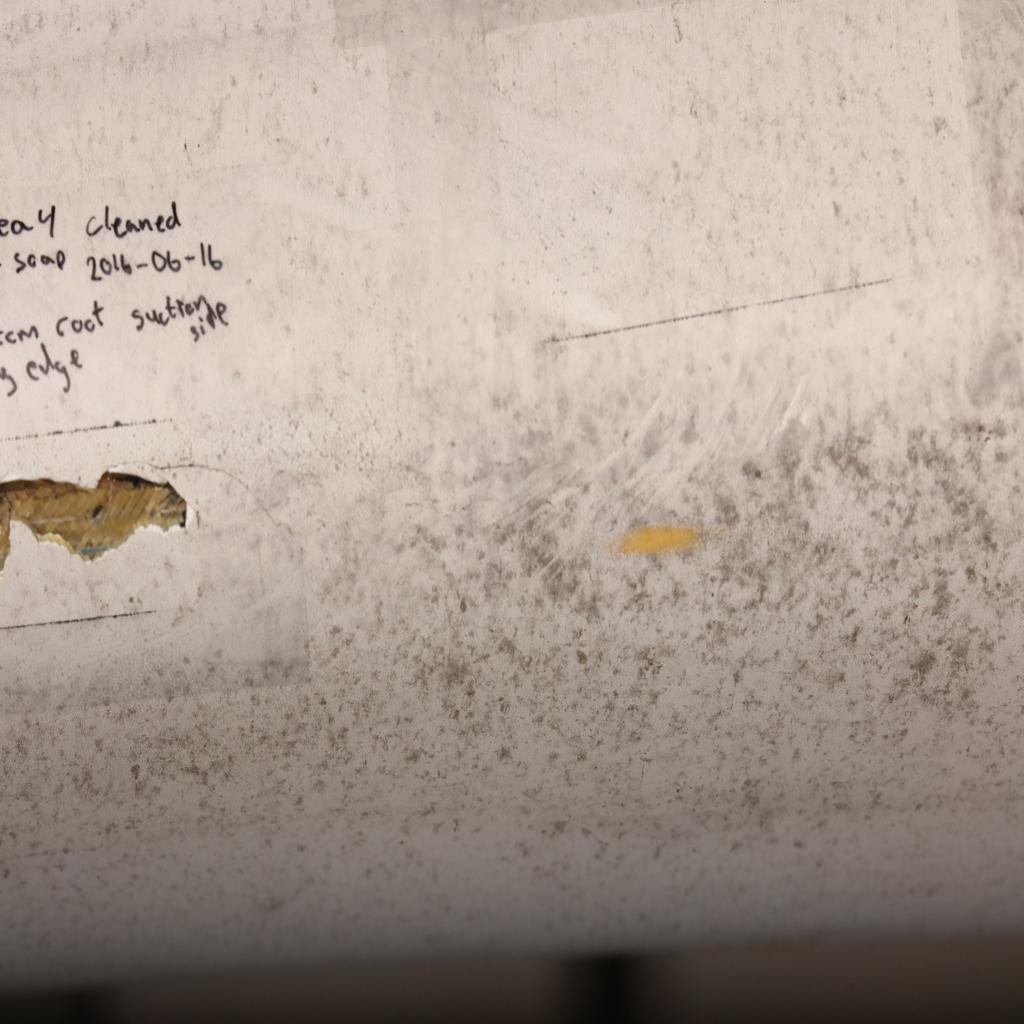 ea 4 cleaned
soap 2016-06-16
root suction
side
edge